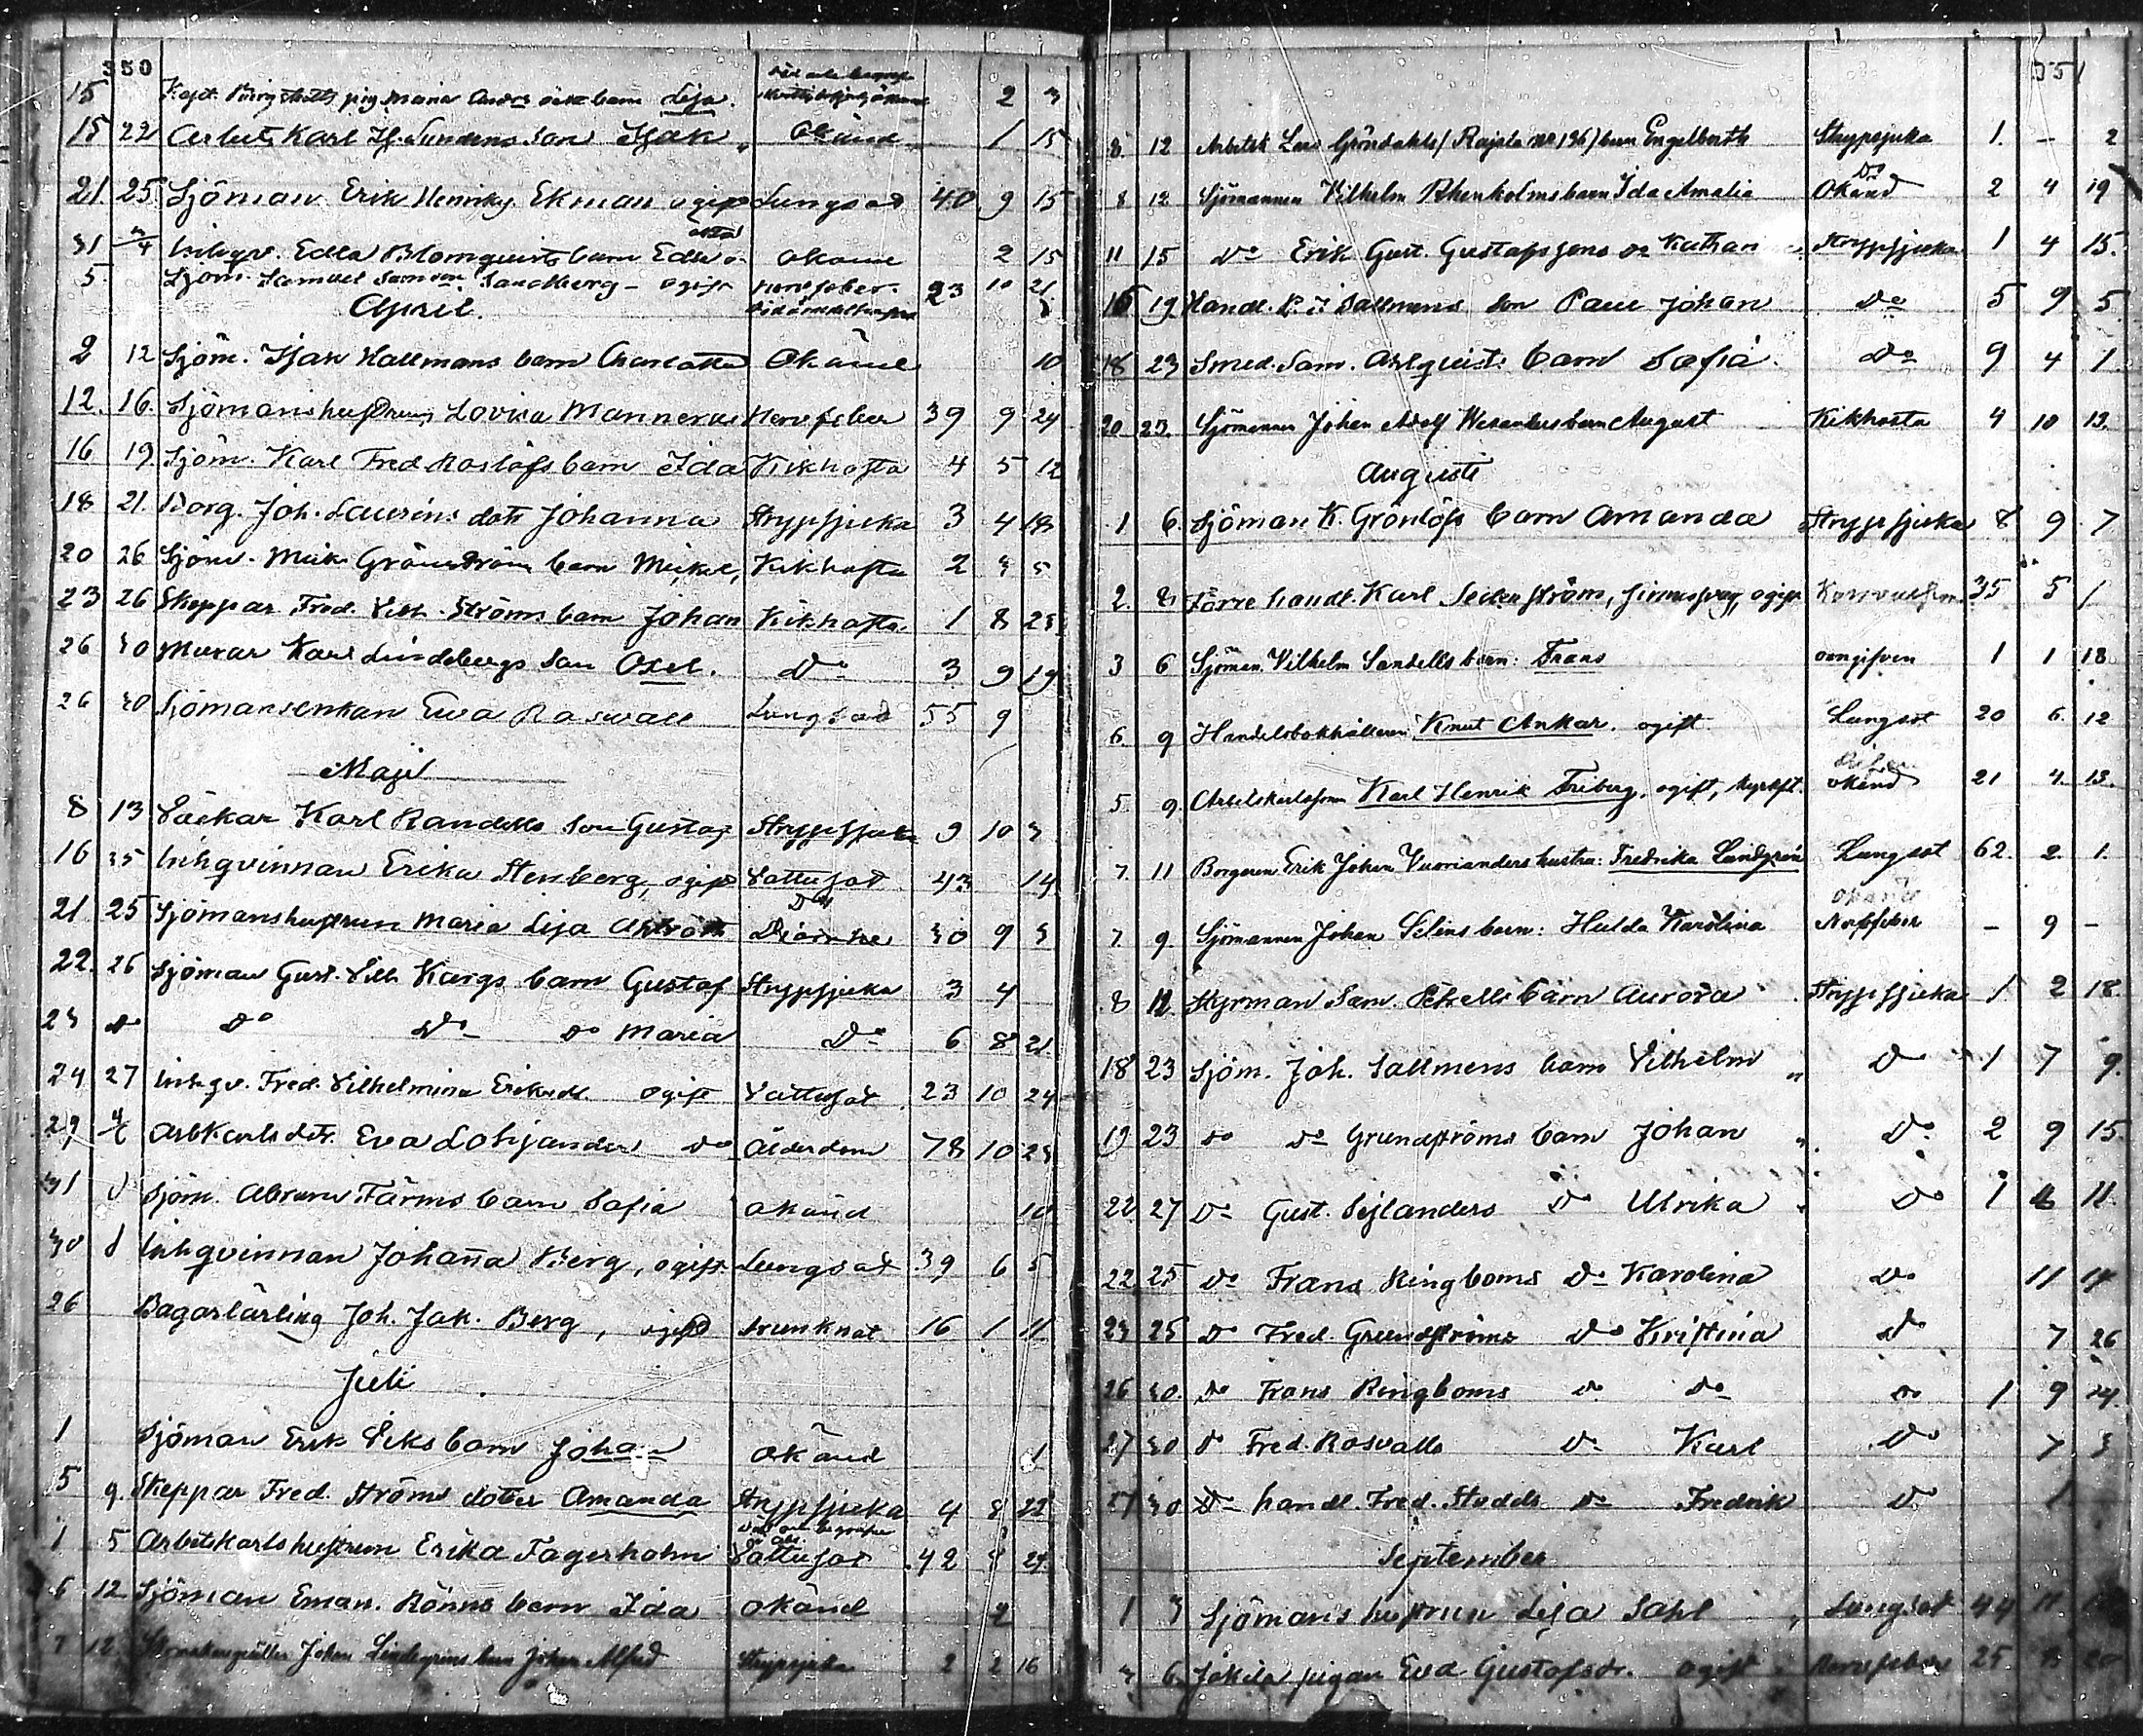 350
15 Kapt. pig Maria Andrs barn Lisa. 2 3
15 22 Arbets Karl Is. Sundens son Isak Okänd 1 15
21. 25 Sjöman Erik Henriks Ekman ogift Lungsot 40 9 15
31 4 Inhqv. Edla Blomqvists barn Edla okänd 2 15
5. Sjöm. Samuel Samson Sandberg - ogift nervfeber 23 10 21
April.
2 12 Sjöm. Isak Hallmans barn Charlotta Okänd 10
12. 16. Sjömanshustrun, Lovisa Mannerus Nervfeber 39 9 24
16 19 Sjöm. Karl Fred. Roslöfs barn Ida Kikhosta 4 5 12
18 21. Borg. Joh. Laurens dotr Johanna Strypsjuka 3 4 18
20 26 Sjöm. Mick. Grönströms barn Mickel, Kikhosta 2 3 5
23 26 Skeppar Fred. Vilh. Ströms barn Johan Kikhosta 1 8 23
26 30 Murar Karl Lindebergs son Axel. Do 3 9 19
26 30 Sjömansenkan Eva Rosvall Lungsot 55 9
Maji
8 13 Karl Randells son Gustaf Strypsjuka 9 10 3
16 25 Inhqvinnan Erika Stenberg, ogift Vattusot 43 14
21. 25 Sjömanshustrun Maria Lisa 30 9 3
22. 26 Sjöman Gust. Vilh. Kargs barn Gustaf Strypsjuka 3 4
23 Do Do Do Do Maria Do 6 8 21.
24 27 Inhqv. Fred. Vilhelmina ogift Vattusot 23 10 24
29 4/6 Arbkarls dotr. Eva Lohjander Do Ålderdom 78 10 23
31 Sjöm. Abram Färms barn Sofia okänd 10
30 Inhqvinnan Johanna Berg, ogift Lungsot 39 6 5
26 Bagarlärling Joh. Jak. Berg, ogift drunknat 16 1 11
Juli
1 Sjöman Erik Viks barn Johan okänd 1
5 9. Skeppar Fred. Ströms dotter Amanda Strypsjuka 4 8 22
1 5 Arbetskarlshustrun Erika Fagerholm Vattusot 42 24
6 12 Sjöman Eman. Rönns barn Ida okänd 2
7 12 Johan Lindgrens barn Johan Alfred Strypsjuka 2 2 16
351
8. 12 Arbetsk Lars Gröndahls (Rajala No 136) barn Engelberth Strypsjuka 1. - 2
8 12 Sjömannen Vilhelm Rhenholms barn Ida Amalia Okänd 2 4 19
11 15 Do Erik Gust. Gustafssons Strypsjuka 1 4 15.
15 19 Handl. P. J. Sallmens son Paul Johan Do 5 9 5
18 23 Smed. Sam. Ahlqvists barn Sofia. Do 9 4 1
20 23. Sjömannen Johan Adolf barn August Kikhosta 4 10 13.
Augusti
1 6. Sjöman K. Grönlöfs barn Amanda Strypsjuka 8 9 7
2. 8 Förre handl. Karl Sederström, ogift 35 5 1
3 6 Sjöman Vilhelm Sandells barn: Frans oangifven 1 1 18
6. 9 Handelsbokhållaren Knut Ankar. ogift Lungsot 20 6. 12
5 9. Arbetskarlssonen Karl Henrik Friberg, ogift, okänd 21 4. 13.
7. 11 Borgaren Erik Johan Vuorianders hustru: Fredrika Lundgrén Lungsot 62. 2. 1.
7. 9. Sjömannen Johan Selins barn: Hulda Karolina okänd - 9 -
8 12. Styrman Sam. Petrells barn Aurora Strypsjuka 1 2 18.
18 23 Sjöm. Joh. Sallmens barn Vilhelm " Do 1 7 9.
19 23 Do Do Grundströms barn Johan " Do 2 9 15.
22 27 Do Gust. Sjlanders Do Ulrika " Do 1 11.
22. 25 Do Frans Ringboms Do Karolina Do 11 14
23 25 Do Fred. Grundströms Do Kristina Do 7 26
26 30. Do Frans Ringboms Do Do Do 1 9 24.
27 30 Do Fred. Rosvalls Do Karl Do 7 3
27 30 Do handl. Fred. Stodds Do Fredrik Do 1
September
1 3 Sjömanshustrun Lisa Sahl " Lungsot 44 11
6 Jokila pigan Eva Gustafsdr. ogift Nervfeber 25